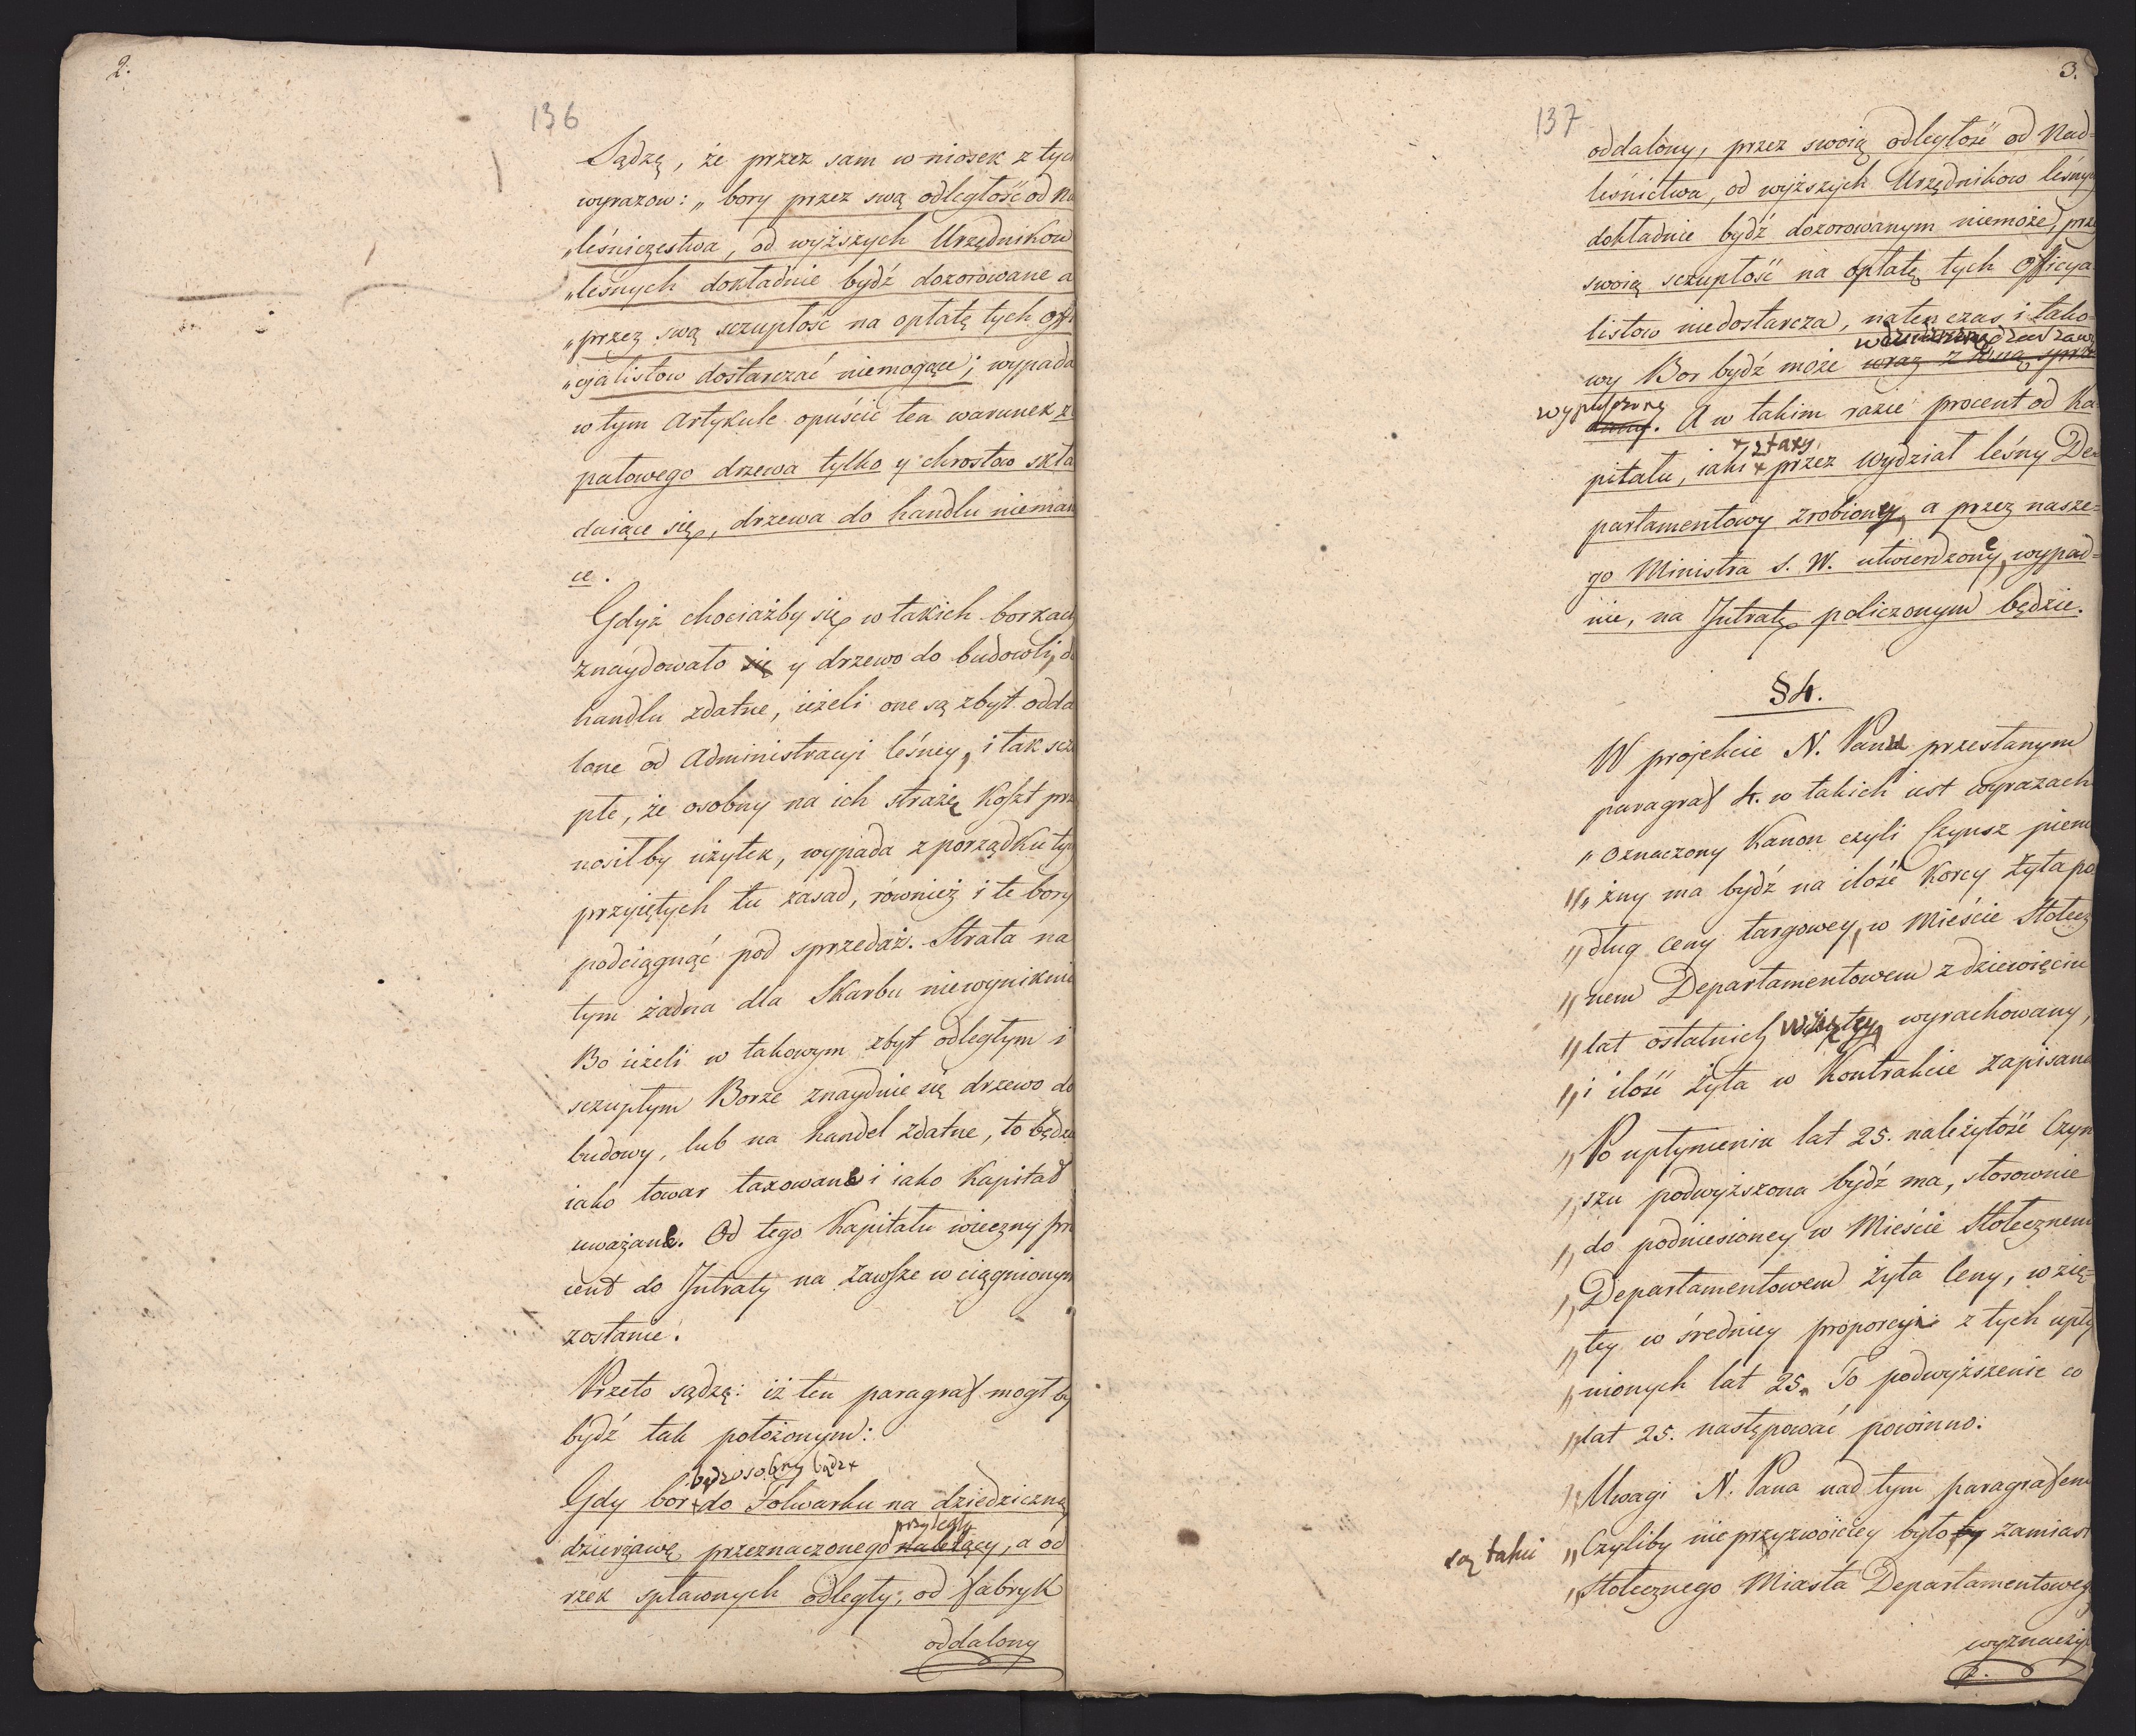 2.
136
Sądzę, że przez sam wniosek z tych
wyrazow: „bory przez swą odległość od Na
„leśniczestwa, od wyższych Urzędnikow
„leśnych dokładnie bydź dozorowane a
„przez swą szczupłość na opłatę tych offi
„cjalistow dostarczać niemogące; wypada
w tym Artykule opuścić ten warunek, z
pałowego drzewa tylko y chrostow skła
daiące się, drzewa do handlu niemaią
ce.
Gdyż chociażby się w takich borkach
znaydowało się y drzewo do budowli, do
handlu zdatne, ieżeli one są zbyt odda
lone od Administracyi leśney, i tak szczu
płe, że osobny na ich strażę koszt prze
nosiłby użytek, wypada z porządku tych
przyiętych tu zasad, również i te bory
podciągnąć pod sprzedaż. Strata na
tym żadna dla Skarbu niewyniknie
Bo ieżeli w takowym zbyt odległym i
szczupłym Borze znaydnie się drzewo do
budowy, lub na handel zdatne, to będzie
iako towar taxowane i iako Kapitał
uważane. Od tego Kapitału wieczny pro
cent do Intraty na zawsze wciągnionym
zostanie.
Przeto sądzę: iż ten paragraf mogłby
bydź tak położonym:
bądź osobny bądź +
Gdy bor + do Folwarku na dziedziczną
przyległy
dzierżawę przeznaczonego należący, a od
rzek spławnych odległy; od fabryk
oddalony
3.
137
oddalony, przez swoią odległość od Nad=
leśnictwa, od wyższych Urzędnikow leśnych
dokładnie bydź dozorowanym niemoże, prze
swoią szczupłość na opłatę tych Officya
listow niedostarcza, natenczas i tako=
wy Bor bydź może wraz z
wypuszczony. A w takim razie procent od Ka
+ z taxy
pitału, iaki + przez wydział leśny De
partamentowy zrobioney a przez nasze=
go Ministra S. W. utwierdzoney, wypad=
nie, na Intratę policzonym będzie.
§ 4.
W projekcie N. Panu przesłanym
paragraf 4. w takich iest wyrazach
„Oznaczony Kanon czyli Czynsz pienię
„żny ma bydź na ilość Korcy Żyta po
„dług ceny targowey, w Mieście Stołecz
„nem Departamentowem z dziewięciu
„lat ostatnich wziętey wyrachowany,
„i ilość żyta w Kontrakcie zapisana
„Po upłynieniu lat 25. należytość Czyn
„szu podwyższona bydź ma, stosownie
„do podniesioney w Mieście Stołecznem
„Departamentowem żyta Ceny, wzię=
„tey w średniey proporcyi z tych upły
„nionych lat 25. To podwyższenie co
„lat 25. następować powinno.
Uwagi N. Pana nad tym paragrafem
są takie
„Czyliby nieprzyzwoiciey było by zamiast
„Stołecznego Miasta Departamentowego
wyznaczyć